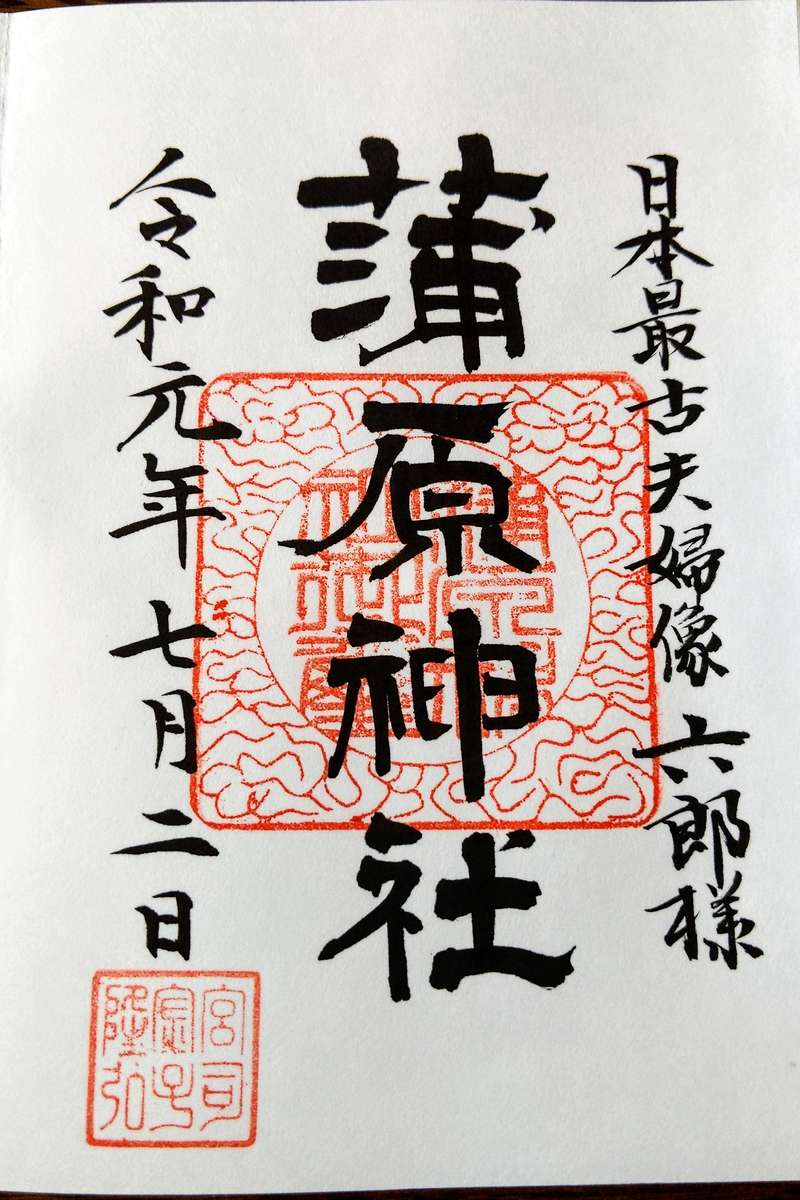 日本最古夫婦像 六郎様
蒲原神社
令和元年七月二日
宮司
金子
隆弘